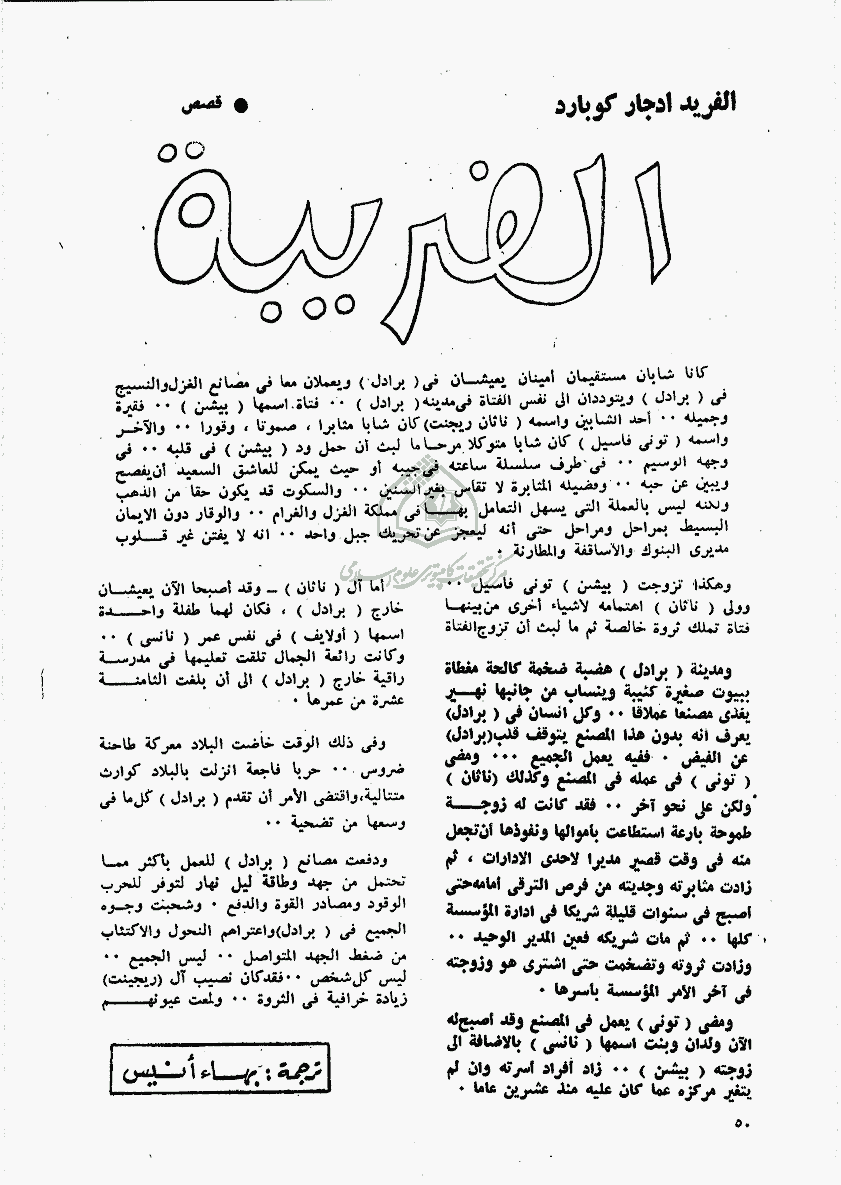 الفريد ادجار كوبارد
● قصص
الغريبة
كانا شابان مستقيمان أمينان يعيشــان فى ( برادل ) ويعملان معا فى مصانع الغزل والنسيج
فى ( برادل ) ويتوددان الى نفس الفتاة فى مدينه ( برادل ) ٠٠ فتاة اسمها ( بيشن ) ٠٠ فقيرة
وجميله ٠٠ أحد الشابين واسمه ( ناثان ريجنت ) كان شابا مثابرا ، صموتا ، وقورا ٠٠ والآخــر
واسمه ( تونى فاسيل ) كان شابا متوكلا مرحا ما لبث أن حمل ود ( بيشن ) فى قلبه ٠٠ فى
وجهه الوسيم ٠٠ فى طرف سلسلة ساعته فى جيبه أو حيث يمكن للعاشق السعيد أن يفصح
ويبين عن حبه ٠٠ وفضيله المثابرة لا تقاس بغير السنين ٠٠ والسكوت قد يكون حقا من الذهب
ولكنه ليس بالعملة التى يسهل التعامل بهــا فى مملكة الغزل والغرام ٠٠ والوقار دون الايمان
البسيط بمراحل ومراحل حتى أنه ليعجز عن تحريك جبل واحد ٠٠ انه لا يفتن غير قــلوب
مديرى البنوك والأساقفة والمطارنة ٠
وهكذا تزوجت ( بيشن ) تونى فاسيل ٠٠
وولى ( ناثان ) اهتمامه لأشياء أخرى من بينهــا
فتاة تملك ثروة خالصة ثم ما لبث أن تزوج الفتاة
ومدينة ( برادل ) هضبة ضخمة كالحة مغطاة
ببيوت صغيرة كئيبة وينساب من جانبها نهــير
يغذى مصنعا عملاقا ٠٠ وكل انسان فى ( برادل )
يعرف انه بدون هذا المصنع يتوقف قلب ( برادل )
عن الفيض ٠ ففيه يعمل الجميع ٠٠٠ ومضى
( تونى ) فى عمله فى المصنع وكذلك ( ناثان )
ولكن على نحو آخر ٠٠ فقد كانت له زوجــــة
طموحة بارعة استطاعت بأموالها ونفوذها أن تجعل
منه فى وقت قصير مديرا لاحدى الادارات ، ثم
زادت مثابرته وجديته من فرص الترقى أمامه حتى
أصبح فى سنوات قليلة شريكا فى ادارة المؤسسة
كلها ٠٠ ثم مات شريكه فعين المدير الوحيد ٠٠
وزادت ثروته وتضخمت حتى اشترى هو وزوجته
فى آخر الأمر المؤسسة بأسرها ٠
ومضى ( تونى ) يعمل فى المصنع وقد أصبح له
الآن ولدان وبنت اسمها ( نانسى ) بالاضافة الى
زوجته ( بيشن ) ٠٠ زاد أفراد أسرته وان لم
يتغير مركزه عما كان عليه منذ عشرين عاما ٠
أما آل ( ناثان ) ــ وقد أصبحا الآن يعيشــان
خارج ( برادل ) ، فكان لهما طفلة واحـــدة
اسمها ( أولايف ) فى نفس عمر ( نانسى ) ٠٠
وكانت رائعة الجمال تلقت تعليمها فى مدرسة
راقية خارج ( برادل ) الى أن بلغت الثامنــــة
عشرة من عمرها ٠
وفى ذلك الوقت خاضت البلاد معركة طاحنة
ضروس ٠٠ حربا فاجعة انزلت بالبلاد كوارث
متتالية، واقتضى الأمر أن تقدم ( برادل ) كل ما فى
وسعها من تضحية ٠٠
ودفعت مصانع ( برادل ) للعمل بأكثر ممــا
تحتمل من جهد وطاقة ليل نهار لتوفر للحرب
الوقود ومصادر القوة والدفع ٠ وشحبت وجــوه
الجميع فى ( برادل ) واعتراهم النحول والاكتئاب
من ضغط الجهد المتواصل ٠٠ ليس الجميع ٠٠
ليس كل شخص ٠٠ فقد كان نصيب آل ( ريجينت )
زيادة خرافية فى الثروة ٠٠ ولمعت عيونهــــم
ترجمة : بهــاء أنــيس
٥٠
مركز تحقيقات كامپيوترى علوم اسلامى